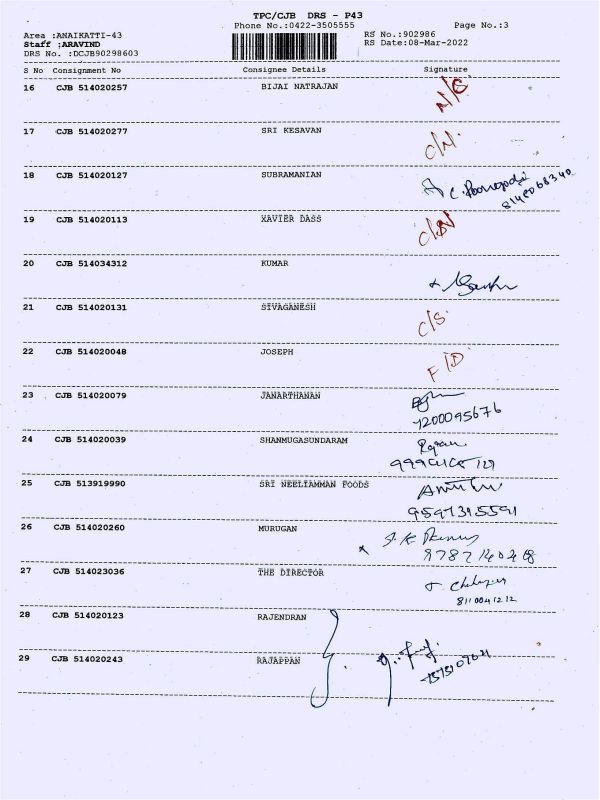 TPC/CJB DRS - P43
Phone No.:0422-3505555 Page No.:3
Area :ANAIKATTI-43 RS No.:902986
Staff :ARAVIND RS Date:08-Mar-2022
DRS No. :DCJB90298603
S No Consignment No Consignee Details Signature
16 CJB 514020257 BIJAI NATRAJAN N/C
17 CJB 514020277 SRI KESAVAN
18 CJB 514020127 SUBRAMANIAN
19 CJB 514020113 XAVIER DASS
20 CJB 514034312 KUMAR
21 CJB 514020131 SIVAGANESH C/S.
22 CJB 514020048 JOSEPH F/D.
23 CJB 514020079 JANARTHANAN
24 CJB 514020039 SHANMUGASUNDARAM
25 CJB 513919990 SRI NEELIAMMAN FOODS
26 CJB 514020260 MURUGAN
27 CJB 514023036 THE DIRECTOR
8110041212
28 CJB 514020123 RAJENDRAN
29 CJB 514020243 RAJAPPAN